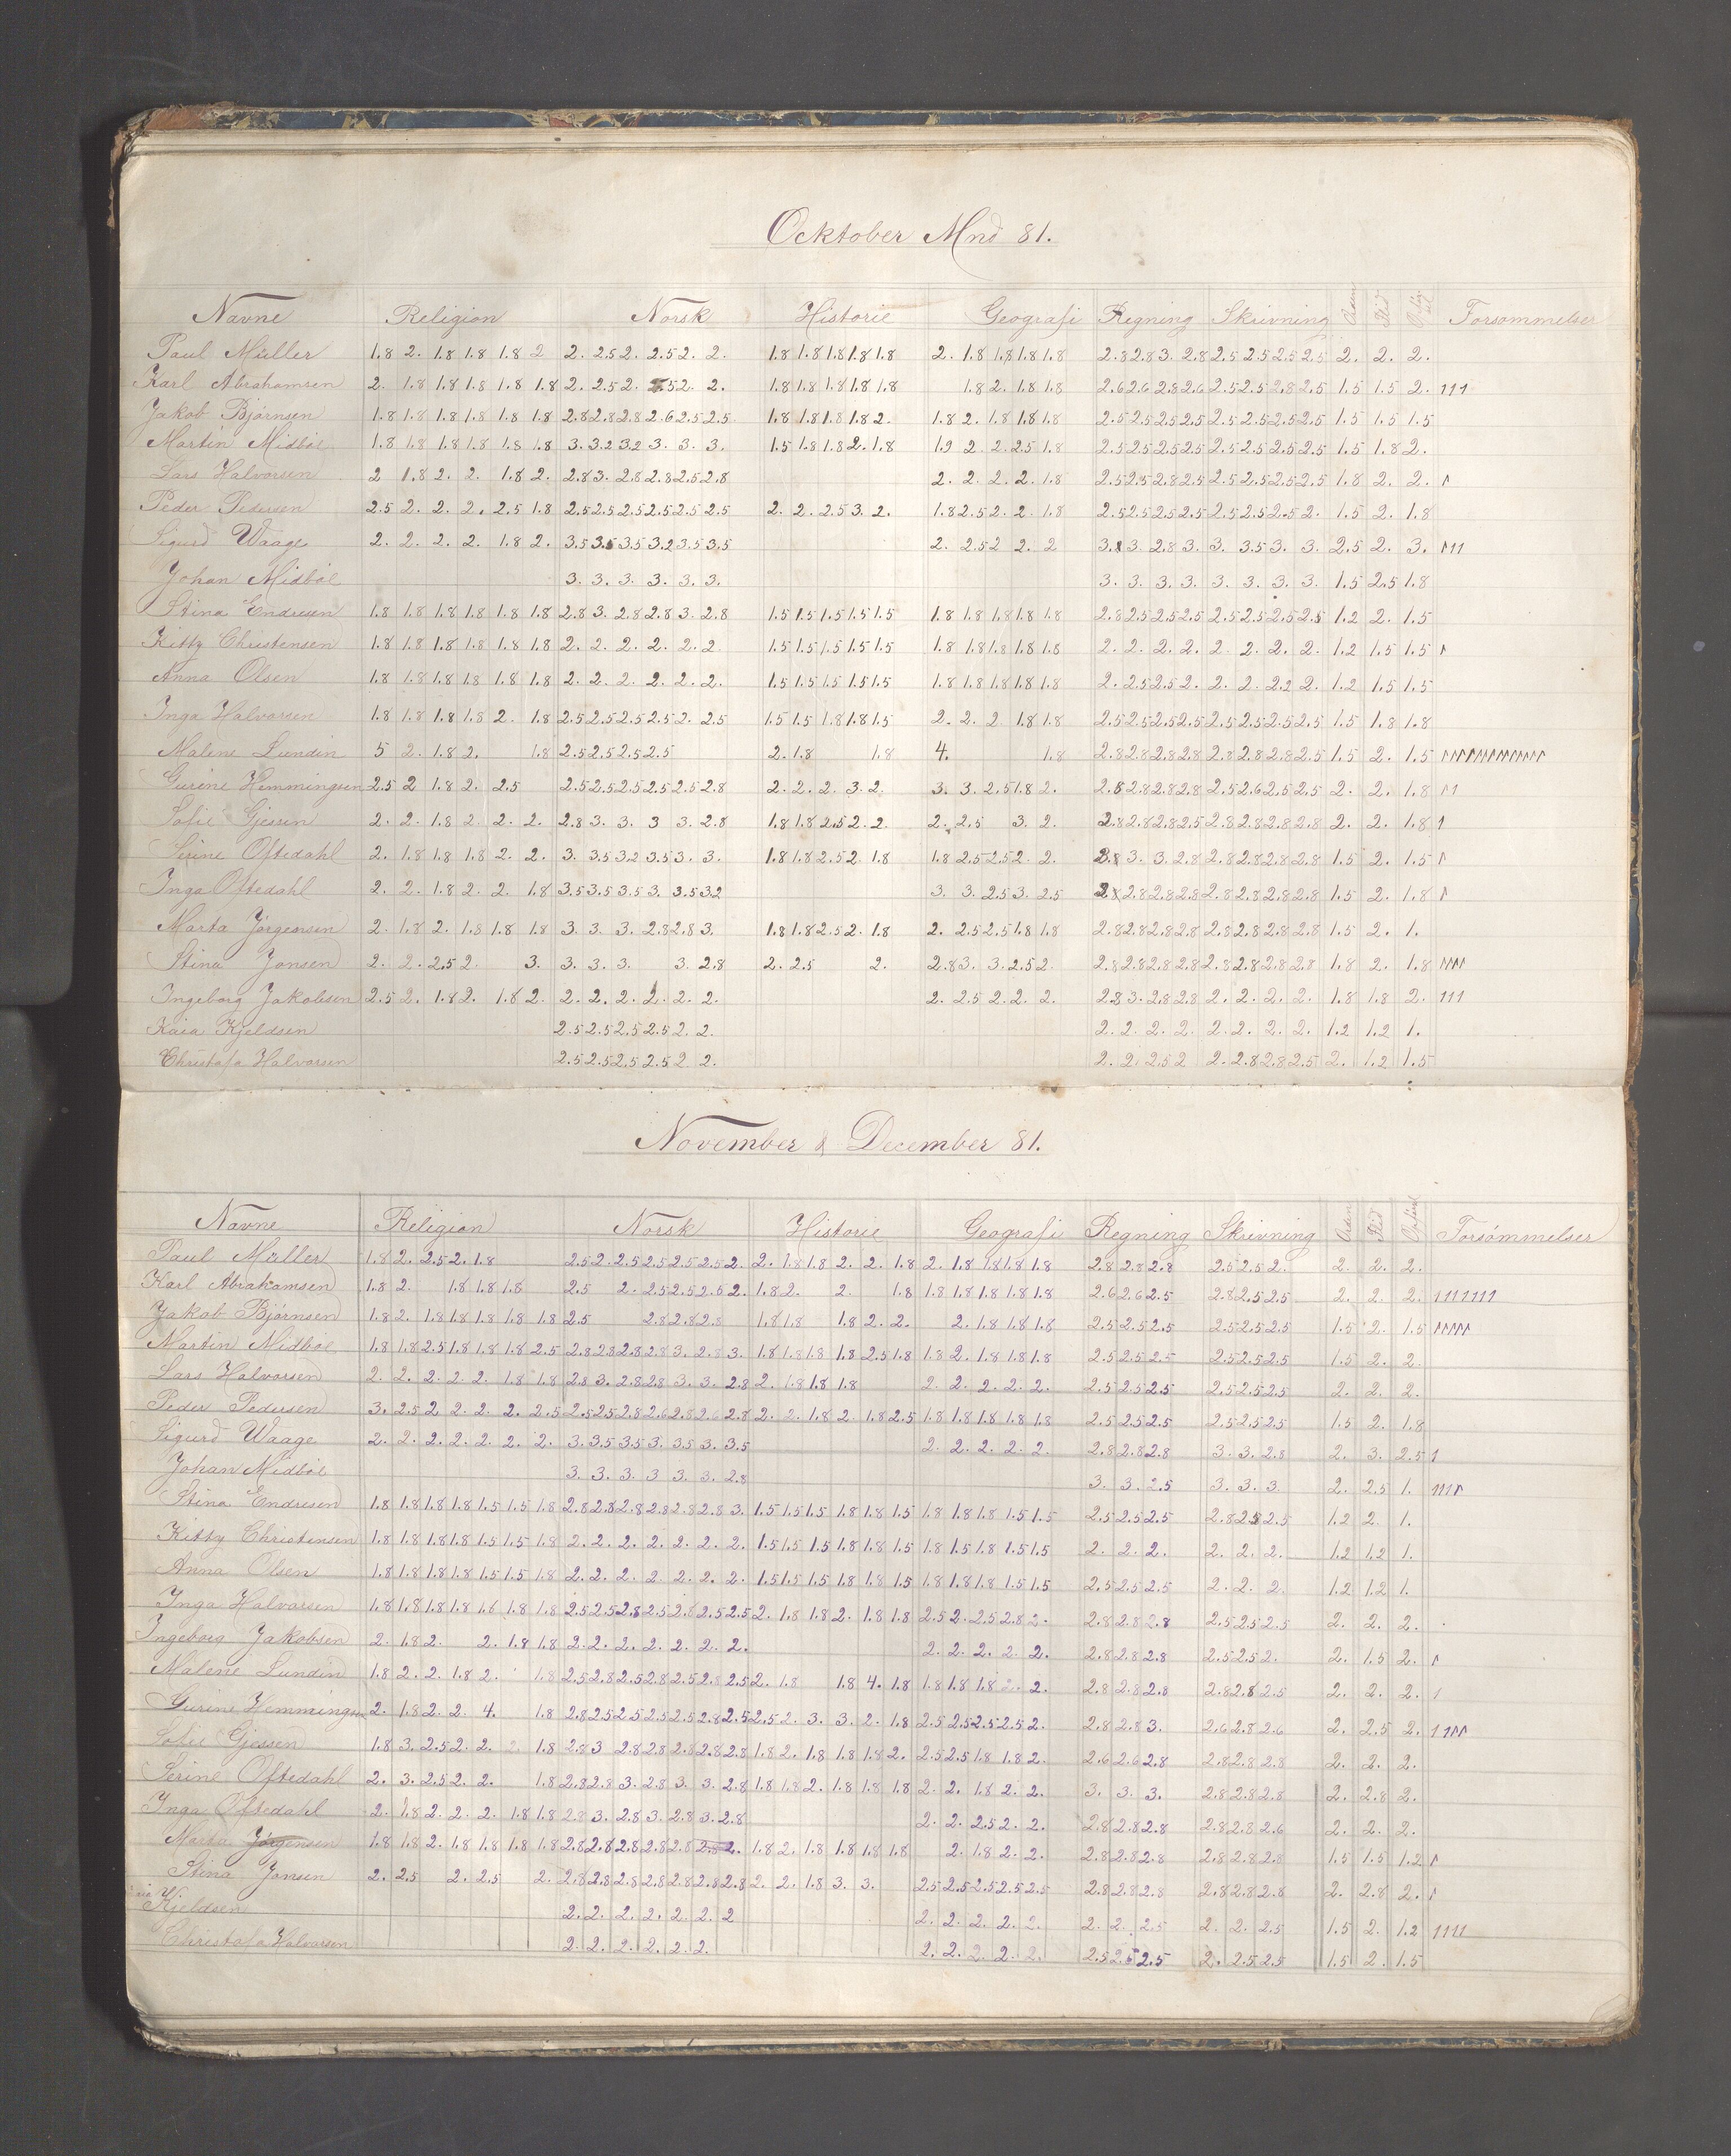 Ocktober Mnd 81.
Navne Religion Norsk Historie Geografi Regning Skrivning Orden Flid Forsømmelser
Paul Müller 1.8 2. 1.8 1.8 1.8 2 2. 2.5 2. 2.5 2. 2. 1.8 1.8 1.8 1.8 1.8 2. 1.8 1.8 1.8 1.8 2.8 2.8 3. 2.8 2.5 2.5 2.5 2.5 2. 2. 2.
Karl Abrahamsen 2. 1.8 1.8 1.8 1.8 1.8 2. 2.5 2. 2.5 2. 2. 1.8 1.8 1.8 1.8 1.8 1.8 2. 1.8 1.8 2.6 2.6 2.8 2.6 2.5 2.5 2.8 2.5 1.5 1.5 2. 111
Jakob Bjørnsen 1.8 1.8 1.8 1.8 1.8 1.8 2.8 2.8 2.8 2.6 2.5 2.5 1.8 1.8 1.8 1.8 2. 1.8 2. 1.8 1.8 1.8 2.5 2.5 2.5 2.5 2.5 2.5 2.5 2.5 1.5 1.5 1.5
Martin Midbøe 1.8 1.8 1.8 1.8 1.8 1.8 3. 3.2 3.2 3. 3. 3. 1.5 1.8 1.8 2. 1.8 1.9 2. 2. 2.5 1.8 2.5 2.5 2.5 2.5 2.5 2.5 2.5 2.5 1.5 1.8 2.
Lars Halvorsen 2 1.8 2. 2. 1.8 2. 2.8 3. 2.8 2.8 2.5 2.8 2. 2. 2. 2. 1.8 2.5 2.5 2.8 2.5 2.5 2.5 2.5 2.5 1.8 2. 2. 1
Peder Pedersen 2.5 2. 2. 2. 2.5 1.8 2.5 2.5 2.5 2.5 2.5 2.5 2. 2. 2.5 3. 2. 1.8 2.5 2. 2. 1.8 2.5 2.5 2.5 2.5 2.5 2.5 2.5 2. 1.5 2. 1.8
Sigurd Waage 2. 2. 2. 2. 1.8 2. 3.5 3.5 3.5 3.2 3.5 3.5 2. 2.5 2 2. 2 3.1 3. 2.8 3. 3. 3.5 3. 3. 2.5 2. 3. 111
Johan Midbøe 3. 3. 3. 3. 3. 3. 3. 3. 3. 3. 3. 3. 3. 3. 1.5 2.5 1.8
Stina Endresen 1.8 1.8 1.8 1.8 1.8 1.8 2.8 3. 2.8 2.8 3. 2.8 1.5 1.5 1.5 1.5 1.5 1.8 1.8 1.8 1.8 1.8 2.8 2.5 2.5 2.5 2.5 2.5 2.5 2.5 1.2 2. 1.5
Kitty Christensen 1.8 1.8 1.8 1.8 1.8 1.8 2. 2. 2. 2. 2. 2 1.5 1.5 1.5 1.5 1.5 1.8 1.8 1.8 1.8 1.8 2. 2. 2. 2. 2. 2. 2. 2. 1.2 1.5 1.5 1
Anna Olsen 1.8 1.8 1.8 1.8 1.8 1.8 2. 2. 2. 2. 2. 2. 1.5 1.5 1.5 1.5 1.5 1.8 1.8 1.8 1.8 1.8 2. 2.5 2.5 2. 2. 2. 2.2 2. 1.2 1.5 1.5
Inga Halvorsen 1.8 1.8 1.8 1.8 2. 1.8 2.5 2.5 2.5 2.5 2. 2.5 1.5 1.5 1.8 1.8 1.5 2. 2. 2 1.8 1.8 2.5 2.5 2.5 2.5 2.5 2.5 2.5 2.5 1.5 1.8 1.8
Malene Lundin 5 2. 1.8 2. 1.8 2.5 2.5 2.5 2.5 2. 1.8 1.8 4. 1.8 2.8 2.8 2.8 2.8 2.8 2.8 2.8 2.5 1.5 2. 1.5
Gurine Hemmingsen 2.5 2 1.8 2. 2.5 2.5 2.5 2.5 2.5 2.5 2.8 2. 2. 2. 3. 2. 3. 3. 2.5 1.8 2. 2.8 2.8 2.8 2.8 2.5 2.6 2.5 2.5 2. 2. 1.8 11
Sofie Gjessen 2. 2. 1.8 2. 2. 2. 2.8 3. 3. 3 3. 2.8 1.8 1.8 2.5 2. 2. 2. 2.5 3. 2. 2.8 2.8 2.8 2.5 2.8 2.8 2.8 2.8 2. 2. 1.8 1
Serine Oftedahl 2. 1.8 1.8 1.8 2. 2. 3. 3.5 3.2 3.5 3. 3. 1.8 1.8 2.5 2. 1.8 1.8 2.5 2.5 2. 2. 2.8 3. 3. 2.8 2.8 2.8 2.8 2.8 1.5 2. 1.5 1
Inga Oftedahl 2. 2. 1.8 2. 2. 1.8 3.5 3.5 3.5 3. 3.5 3.2 3. 3. 2.5 3. 2.5 2.8 2.8 2.8 2.8 2.8 2.8 2.8 1.5 2. 1.8 1
Marta Jørgensen 2. 1.8 2. 1.8 1.8 1.8 3. 3. 3. 2.8 2.8 3. 1.8 1.8 2.5 2. 1.8 2. 2.5 2.5 1.8 1.8 2.8 2.8 2.8 2.8 2.8 2.8 2.8 2.8 1.5 2. 1.
Stina Jonsen 2. 2. 2.5 2. 3. 3. 3. 3. 3. 2.8 2. 2.5 2. 2.8 3. 3. 2.5 2. 2.8 2.8 2.8 2.8 2.8 2.8 2.8 2.8 1.8 2. 1.8 1111
Ingeborg Jakobsen 2.5 2. 1.8 2. 1.8 2. 2. 2. 2. 2. 2. 2. 2. 2.5 2. 2. 2. 2.8 3. 2.8 2.8 2. 2. 2. 2. 1.8 1.8 2. 111
Kaia Kjeldsen 2.5 2.5 2.5 2.5 2. 2. 2. 2. 2. 2. 2. 2. 2. 2. 1.2 1.2 1.
Christofa Halvorsen 2.5 2.5 2.5 2.5 2 2. 2. 2. 2.5 2 2. 2.8 2.8 2.5 2. 1.2 1.5
November & December 81.
Navne Religion Norsk Historie Geografi Regning Skrivning Orden Flid Forsømmelser
Paul Müller 1.8 2. 2.5 2. 1.8 2.5 2. 2.5 2.5 2.5 2.5 2. 2. 1.8 1.8 2. 2. 1.8 2. 1.8 1.8 1.8 1.8 2.8 2.8 2.8 2.5 2.5 2. 2. 2. 2.
Karl Abrahamsen 1.8 2. 1.8 1.8 1.8 2.5 2. 2.5 2.5 2.6 2. 1.8 2. 2. 1.8 1.8 1.8 1.8 1.8 1.8 2.6 2.6 2.5 2.8 2.5 2.5 2. 2. 2. 1111111
Jakob Bjørnsen 1.8 2. 1.8 1.8 1.8 1.8 1.8 2.5 2.8 2.8 2.8 1.8 1.8 1.8 2. 2. 2. 1.8 1.8 1.8 2.5 2.5 2.5 2.5 2.5 2.5 1.5 2. 1.5 11111
Martin Midbøe 1.8 1.8 2.5 1.8 1.8 1.8 2.5 2.8 2.8 2.8 2.8 3. 2.8 3. 1.8 1.8 1.8 1.8 2.5 1.8 1.8 2. 1.8 1.8 1.8 2.5 2.5 2.5 2.5 2.5 2.5 1.5 2. 2.
Lars Halvorsen 2. 2. 2. 2. 2. 1.8 1.8 2.8 3. 2.8 2.8 3. 3. 2.8 2. 1.8 1.8 1.8 2. 2. 2. 2. 2. 2.5 2.5 2.5 2.5 2.5 2.5 2. 2. 2.
Peder Pedersen 3. 2.5 2 2. 2. 2. 2.5 2.5 2.5 2.8 2.6 2.8 2.6 2.8 2. 2. 1.8 2. 1.8 2.5 1.8 1.8 1.8 1.8 1.8 2.5 2.5 2.5 2.5 2.5 2.5 1.5 2. 1.8
Sigurd Waage 2. 2. 2. 2. 2. 2. 2. 3. 3.5 3.5 3. 3.5 3. 3.5 2. 2. 2. 2. 2. 2.8 2.8 2.8 3. 3. 2.8 2. 3. 2.5 1
Johan Midbøe 3. 3. 3. 3 3. 3. 2.8 3. 3. 2.5 3. 3. 3. 2. 2.5 1. 1111
Stina Endresen 1.8 1.8 1.8 1.8 1.5 1.5 1.8 2.8 2.8 2.8 2.8 2.8 2.8 3. 1.5 1.5 1.5 1.8 1.8 1.5 1.8 1.8 1.8 1.5 1.5 2.5 2.5 2.5 2.8 2.5 2.5 1.2 2. 1.
Kitty Christensen 1.8 1.8 1.8 1.8 1.5 1.5 1.8 2. 2. 2. 2. 2. 2. 2. 1.5 1.5 1.5 1.8 1.8 1.5 1.8 1.5 1.8 1.5 1.5 2. 2. 2. 2. 2. 2. 1.2 1.2 1.
Anna Olsen 1.8 1.8 1.8 1.8 1.5 1.5 1.8 2. 2. 2. 2. 2. 2. 2. 1.5 1.5 1.5 1.8 1.8 1.5 1.8 1.8 1.8 1.5 1.5 2.5 2.5 2.5 2. 2. 2. 1.2 1.2 1.
Inga Halvorsen 1.8 1.8 1.8 1.8 1.8 1.8 1.8 2.5 2.5 2.8 2.5 2.8 2.5 2.5 2. 1.8 1.8 2. 1.8 1.8 2.5 2. 2.5 2.8 2. 2.8 2.8 2.8 2.5 2.5 2.5 2. 2. 2.
Ingeborg Jakobsen 2. 1.8 2. 2. 1.8 1.8 2. 2. 2. 2. 2. 2. 2. 2. 2. 2. 2. 2. 2.8 2.8 2.8 2.5 2.5 2. 2. 1.5 2. 1
Malene Lundin 1.8 2. 2. 1.8 2. 1.8 2.5 2.8 2.5 2.8 2.5 2.8 2.5 2. 1.8 1.8 4. 1.8 1.8 1.8 1.8 2. 2. 2.8 2.8 2.8 2.8 2.8 2.5 2. 2. 2. 1
Gurine Hemmingsen 2. 1.8 2. 2. 4. 1.8 2.8 2.5 2.5 2.5 2.5 2.8 2.5 2.5 2. 3. 3. 2. 1.8 2.5 2.5 2.5 2.5 2. 2.8 2.8 3. 2.6 2.8 2.6 2. 2.5 2. 1111
Sofie Gjessen 1.8 3. 2.5 2. 2. 2. 1.8 2.8 3 2.8 2.8 2.8 2.8 2.8 1.8 2. 1.8 1.8 1.8 2. 2.5 2.5 1.8 1.8 2. 2.6 2.6 2.8 2.8 2.8 2.8 2. 2. 2.
Serine Oftedahl 2. 3. 2.5 2. 2. 1.8 2.8 2.8 3. 2.8 3. 3. 2.8 1.8 1.8 2. 1.8 1.8 1.8 2. 2. 1.8 2. 2. 3. 3. 3. 2.8 2.8 2.8 2. 2.8 2.
Inga Oftedahl 2. 1.8 2. 2. 2. 1.8 1.8 2.8 3. 2.8 3. 2.8 3. 2.8 2. 2. 2.5 2. 2. 2.8 2.8 2.8 2.8 2.8 2.6 2. 2. 2.
Marta Jørgensen 1.8 1.8 2. 1.8 1.8 1.8 1.8 2.8 2.8 2.8 2.8 2.8 2.8 2. 1.8 2. 1.8 1.8 1.8 1.8 2. 1.8 2. 2. 2.8 2.8 2.8 2.8 2.8 2.8 1.5 1.5 1.2 1
Stina Jonsen 2. 2.5 2. 2.5 2. 2.8 2.8 2.8 2.8 2.8 2.8 2.8 2. 2. 1.8 3. 3. 2.5 2.5 2.5 2.5 2.5 2.8 2.8 2.8 2.8 2.8 2.8 2. 2.8 2. 1
Kjeldsen 2. 2. 2. 2. 2. 2. 2 2. 2. 2. 2. 2. 2. 2. 2.5 2. 2. 2.5 1.5 2. 1.2 1111
Christofa Halvorsen 2. 2. 2. 2. 2. 2. 2. 2. 2. 2. 2. 2.5 2.6 2.5 2. 2.5 2.5 1.5 2. 1.5